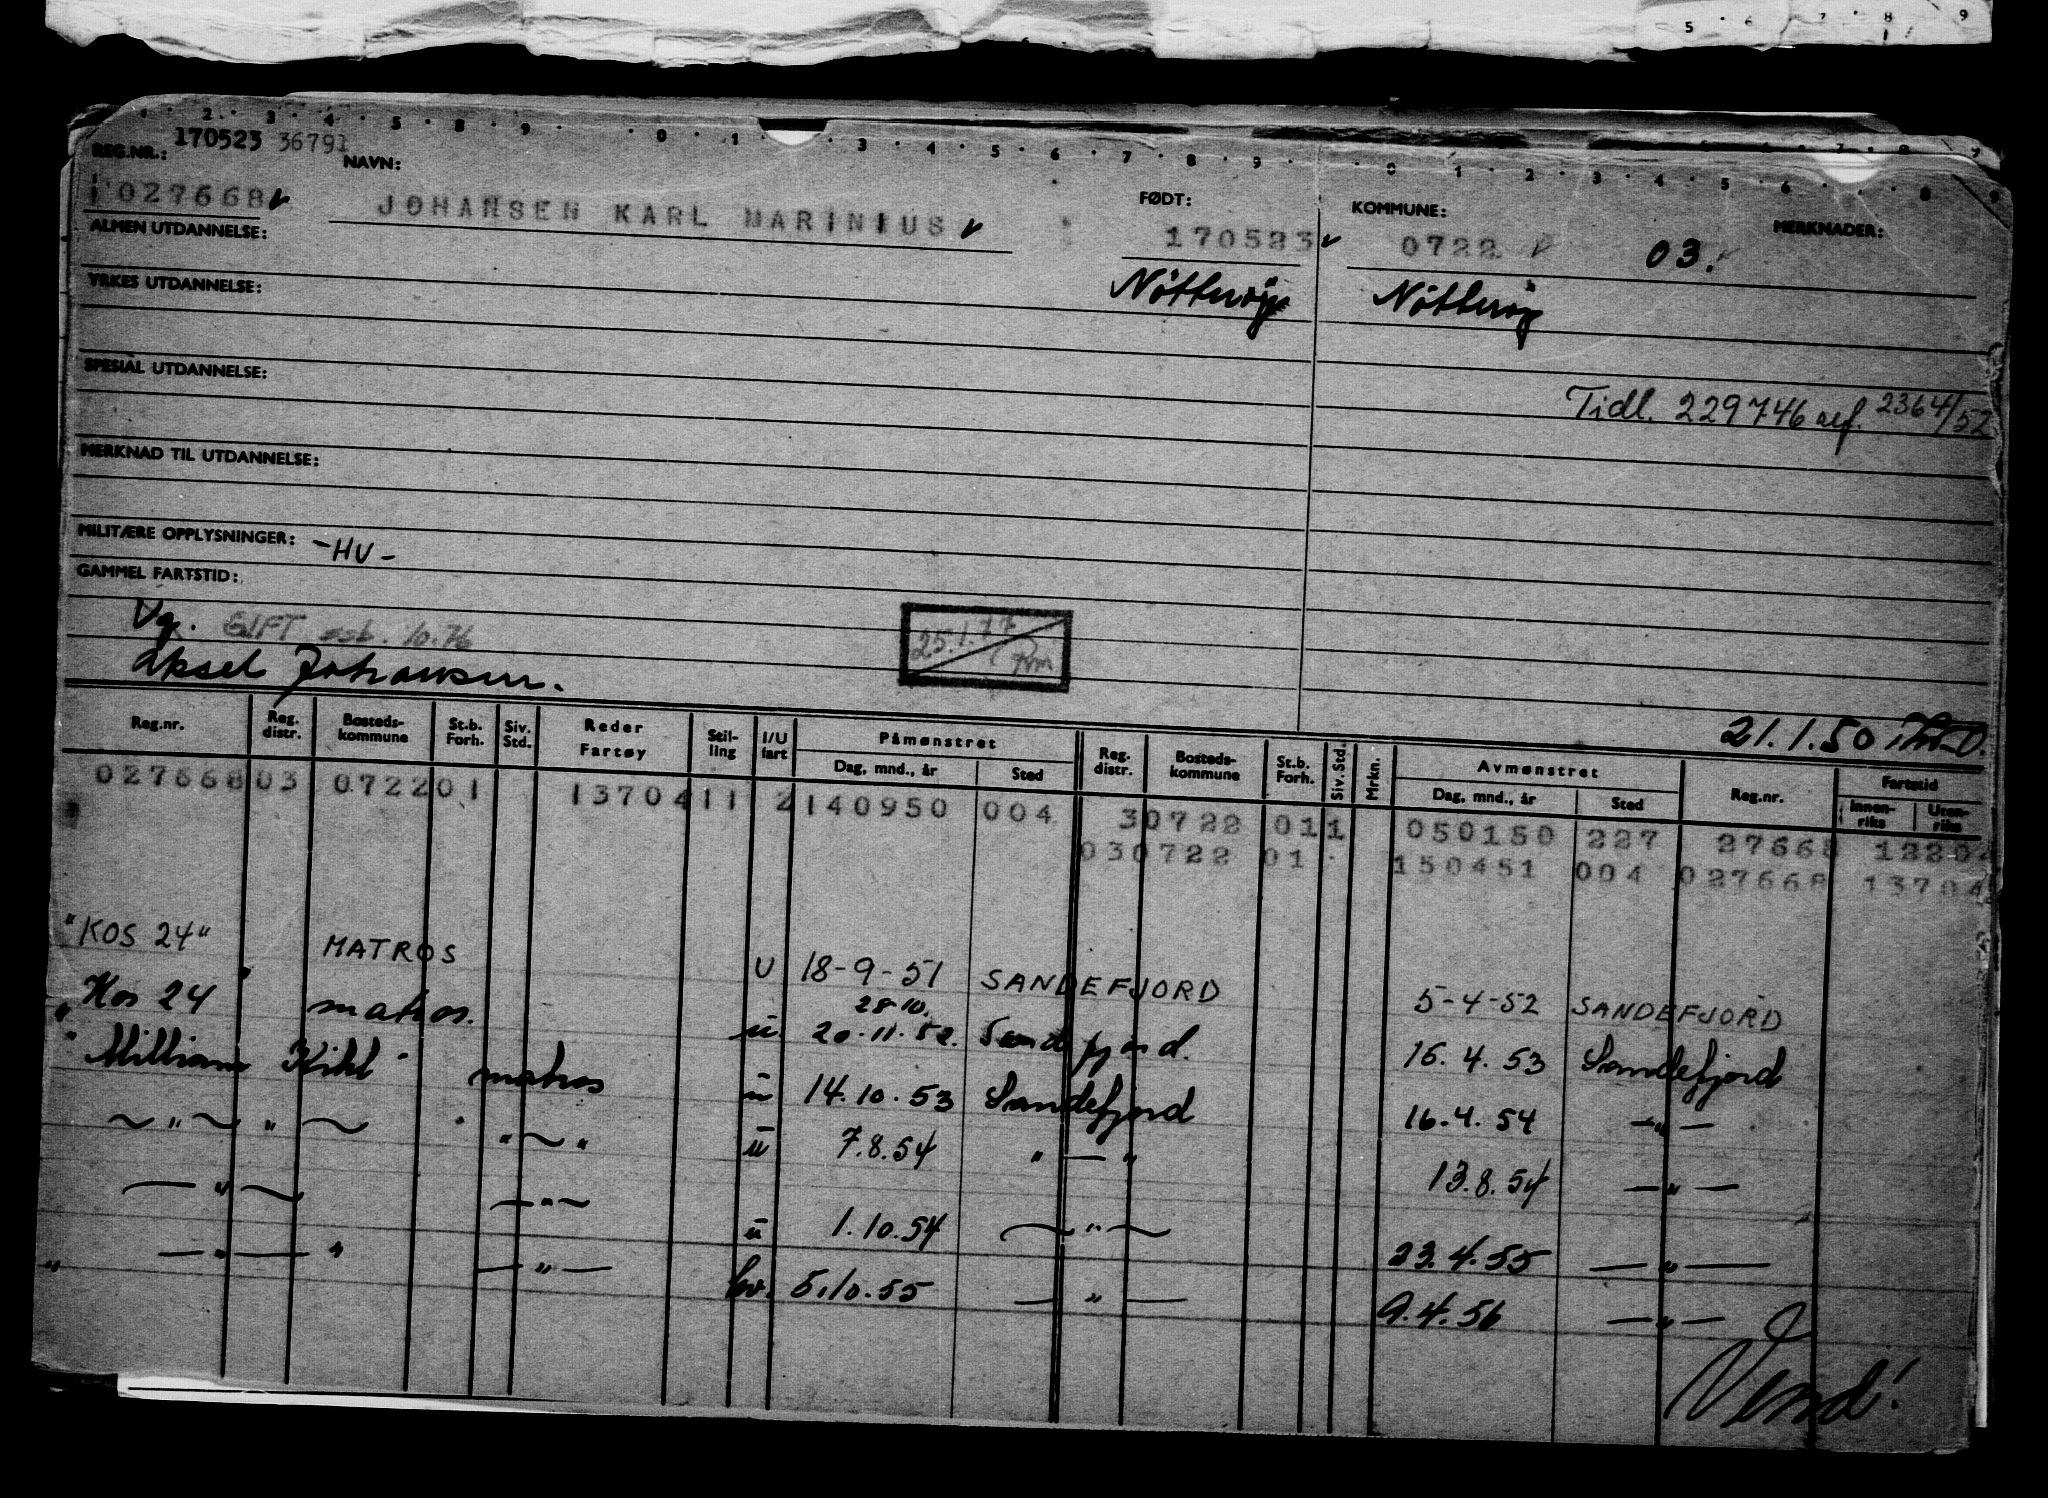 5 · 6 · 7 · 8 9
· 2 · 3 · 4 · 5 · 8 · 9 · · 0 · 1 · 3 · 4 · 5 · 6 · 7 · 8 · 9 · · 0 · 1 · 2 · 3 · 4 · 5 · 6 · 8 9
REG.NR.: 170523 36791 NAVN: FØDT: KOMMUNE: MERKNADER:
027668 JOHANSEN KARL MARINIUS 170523 0722 03.
ALMEN UTDANNELSE: Nötteröy Nötteröy
YRKES UTDANNELSE:
SPESIAL UTDANNELSE:
Tidl. 229746 2364/52
MERKNAD TIL UTDANNELSE:
MILITÆRE OPPLYSNINGER: -HV-
GAMMEL FARTSTID:
Vg. GIFT 10.76
25.1.77
Aksel Johansen.
21.1.50
Reg.nr. Reg. distr. Bosteds-kommune St.b. Forh. Siv. Std. Reder Fartøy Stil-ling I/U fart Påmønstret Dag, mnd., år Sted Reg. distr. Bosteds-kommune St.b. Forh. Siv. Std. Mrkn. Avmønstret Dag, mnd., år Sted Reg.nr. Fartstid Innen-riks Uten-riks
027668 03 0722 01 13704 11 2 140950 004 30722 011 050150 227 27668 12204
030722 01 150451 004 027668 13704
"KOS 24" MATROS U 18-9-51 SANDEFJORD 5-4-52 SANDEFJORD
28-10.
"Kos 24" matros. u 20.11.52. Sandefjord. 16.4.53 Sandefjord
"William matros u 14.10.53 Sandefjord 16.4.54 — " —
~ " ~ " ~ " ~ " u 7.8.54 " — " 13.8.54 — " —
— " ~ — " ~ u 1.10.54 ~ " ~ 23.4.55 — " —
" — " — " — " — hv. 5.10.55 — " — 9.4.56 — " —
Vend!